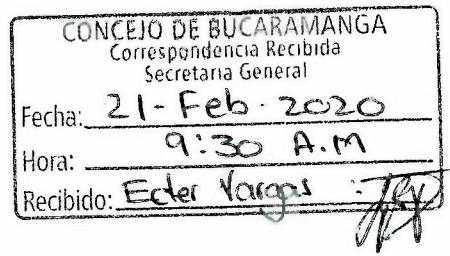 CONCEJO DE BUCARAMANGA
Correspondencia Recibida
Secretaria General
Fecha: 21-Feb. 2020
Hora: 9:30 A.M
Recibido: Ecter Vargas